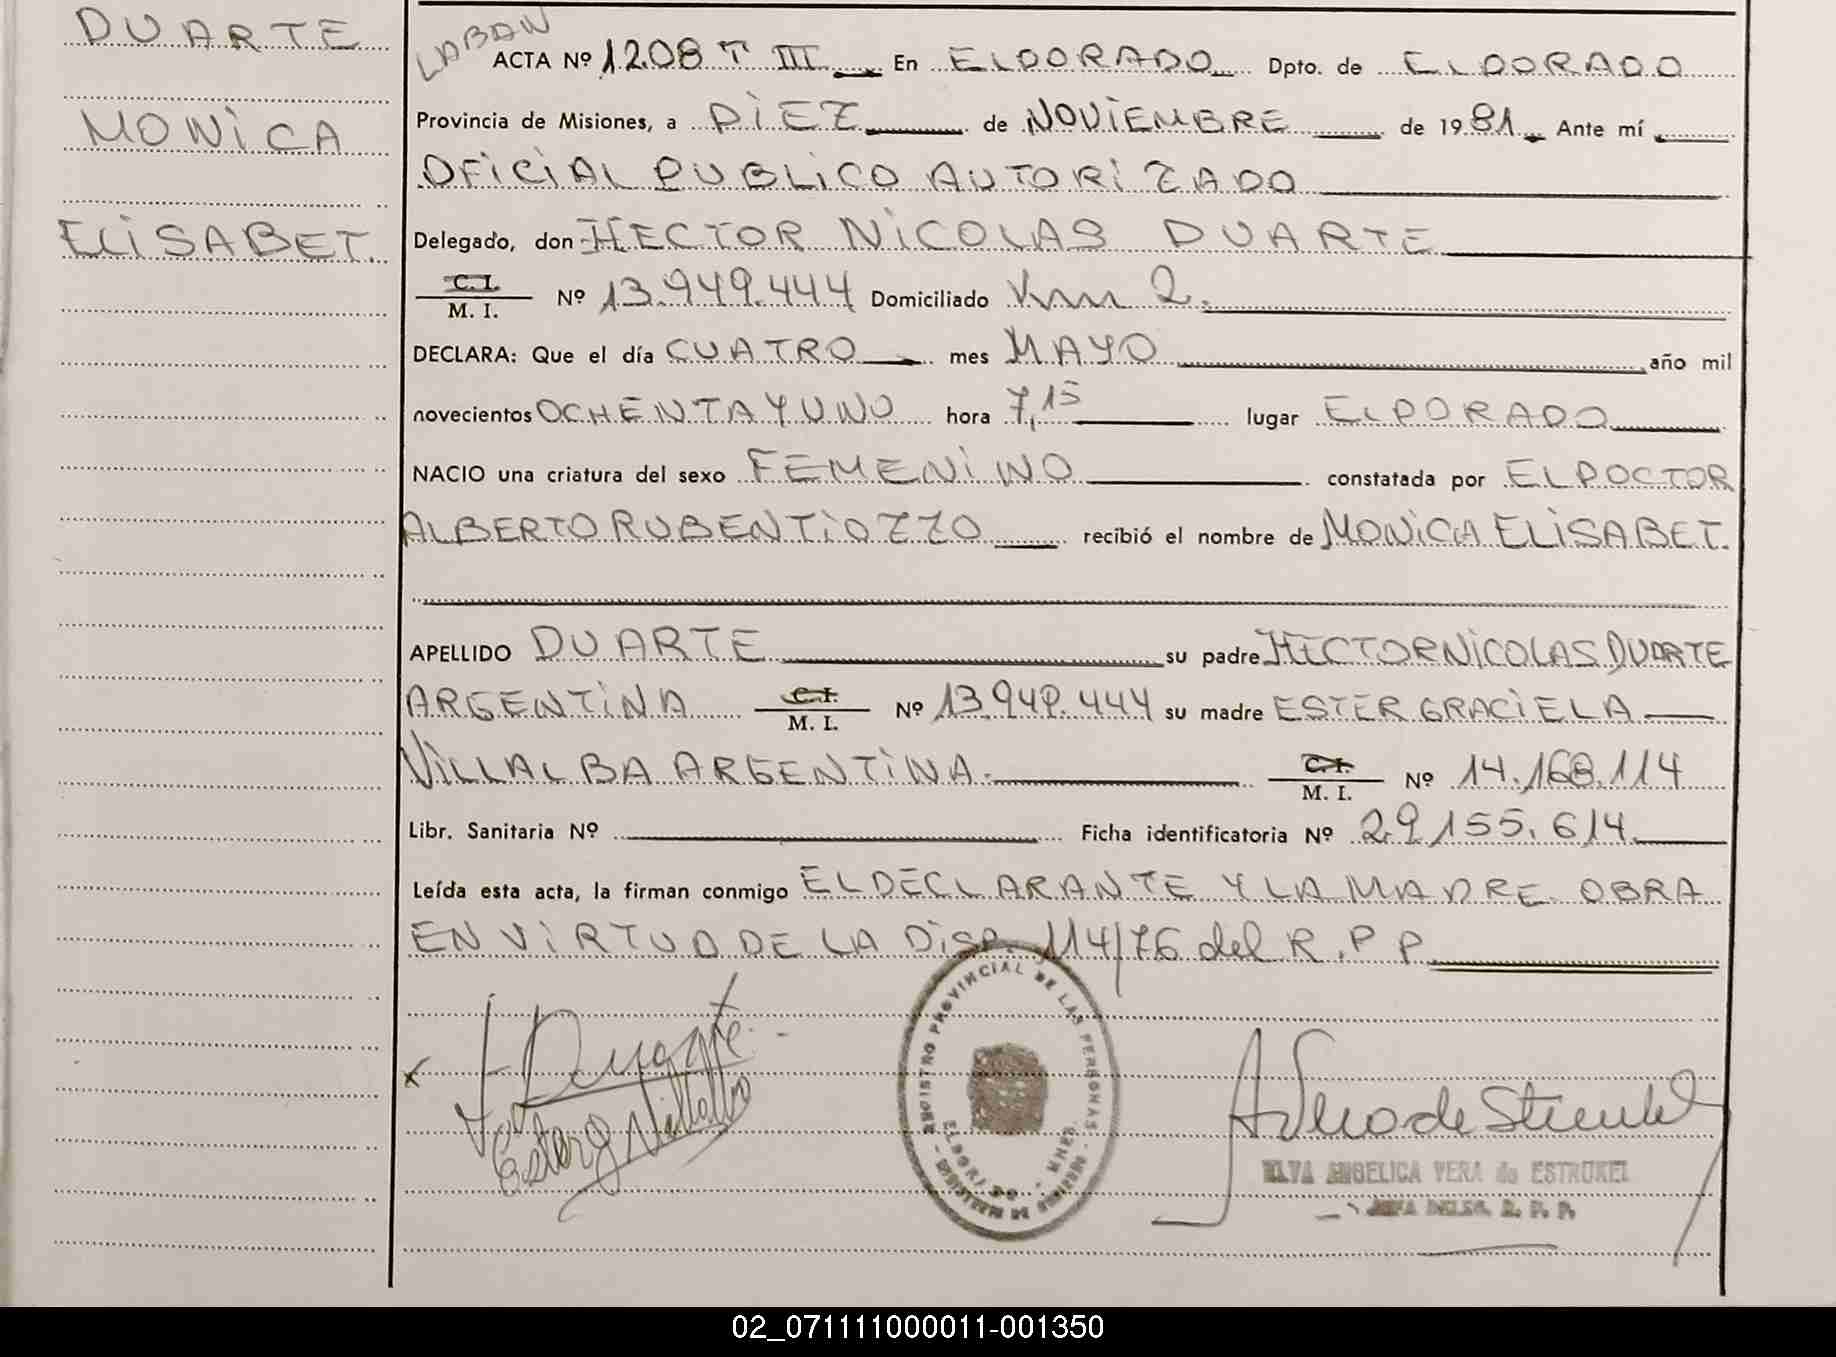 DUARTE
MONICA
ELISABET.
LABAN
ACTA Nº 1208 T III En ELDORADO Dpto. de ELDORADO
Provincia de Misiones, a DIEZ de NOVIEMBRE de 1981 Ante mí
OFICIAL PUBLICO AUTORIZADO
Delegado, don HECTOR NICOLAS DUARTE
C. I.
M. I. Nº 13.949.444 Domiciliado Km 2.
DECLARA: Que el día CUATRO mes MAYO año mil
novecientos OCHENTA Y UNO hora 7,15 lugar ELDORADO
NACIO una criatura del sexo FEMENINO constatada por EL DOCTOR
ALBERTO RUBEN TIOZZO recibió el nombre de MONICA ELISABET.
APELLIDO DUARTE su padre HECTOR NICOLAS DUARTE
ARGENTINA C. I.
M. I. Nº 13.949.444 su madre ESTER GRACIELA
VILLALBA ARGENTINA. C. I.
M. I. Nº 14.168.114
Libr. Sanitaria Nº Ficha identificatoria Nº 29.155.614
Leída esta acta, la firman conmigo EL DECLARANTE Y LA MADRE. OBRA
EN VIRTUD DE LA DISP. 114/76 del R. P P
Duarte
Ester G Villalba
REGISTRO PROVINCIAL DE LAS PERSONAS
ELDORADO - MNES.
A Vera de Struekel
ELVA ANGELICA VERA de ESTRUKEL
JEFA DELEG. R. P. P.
02_071111000011-001350